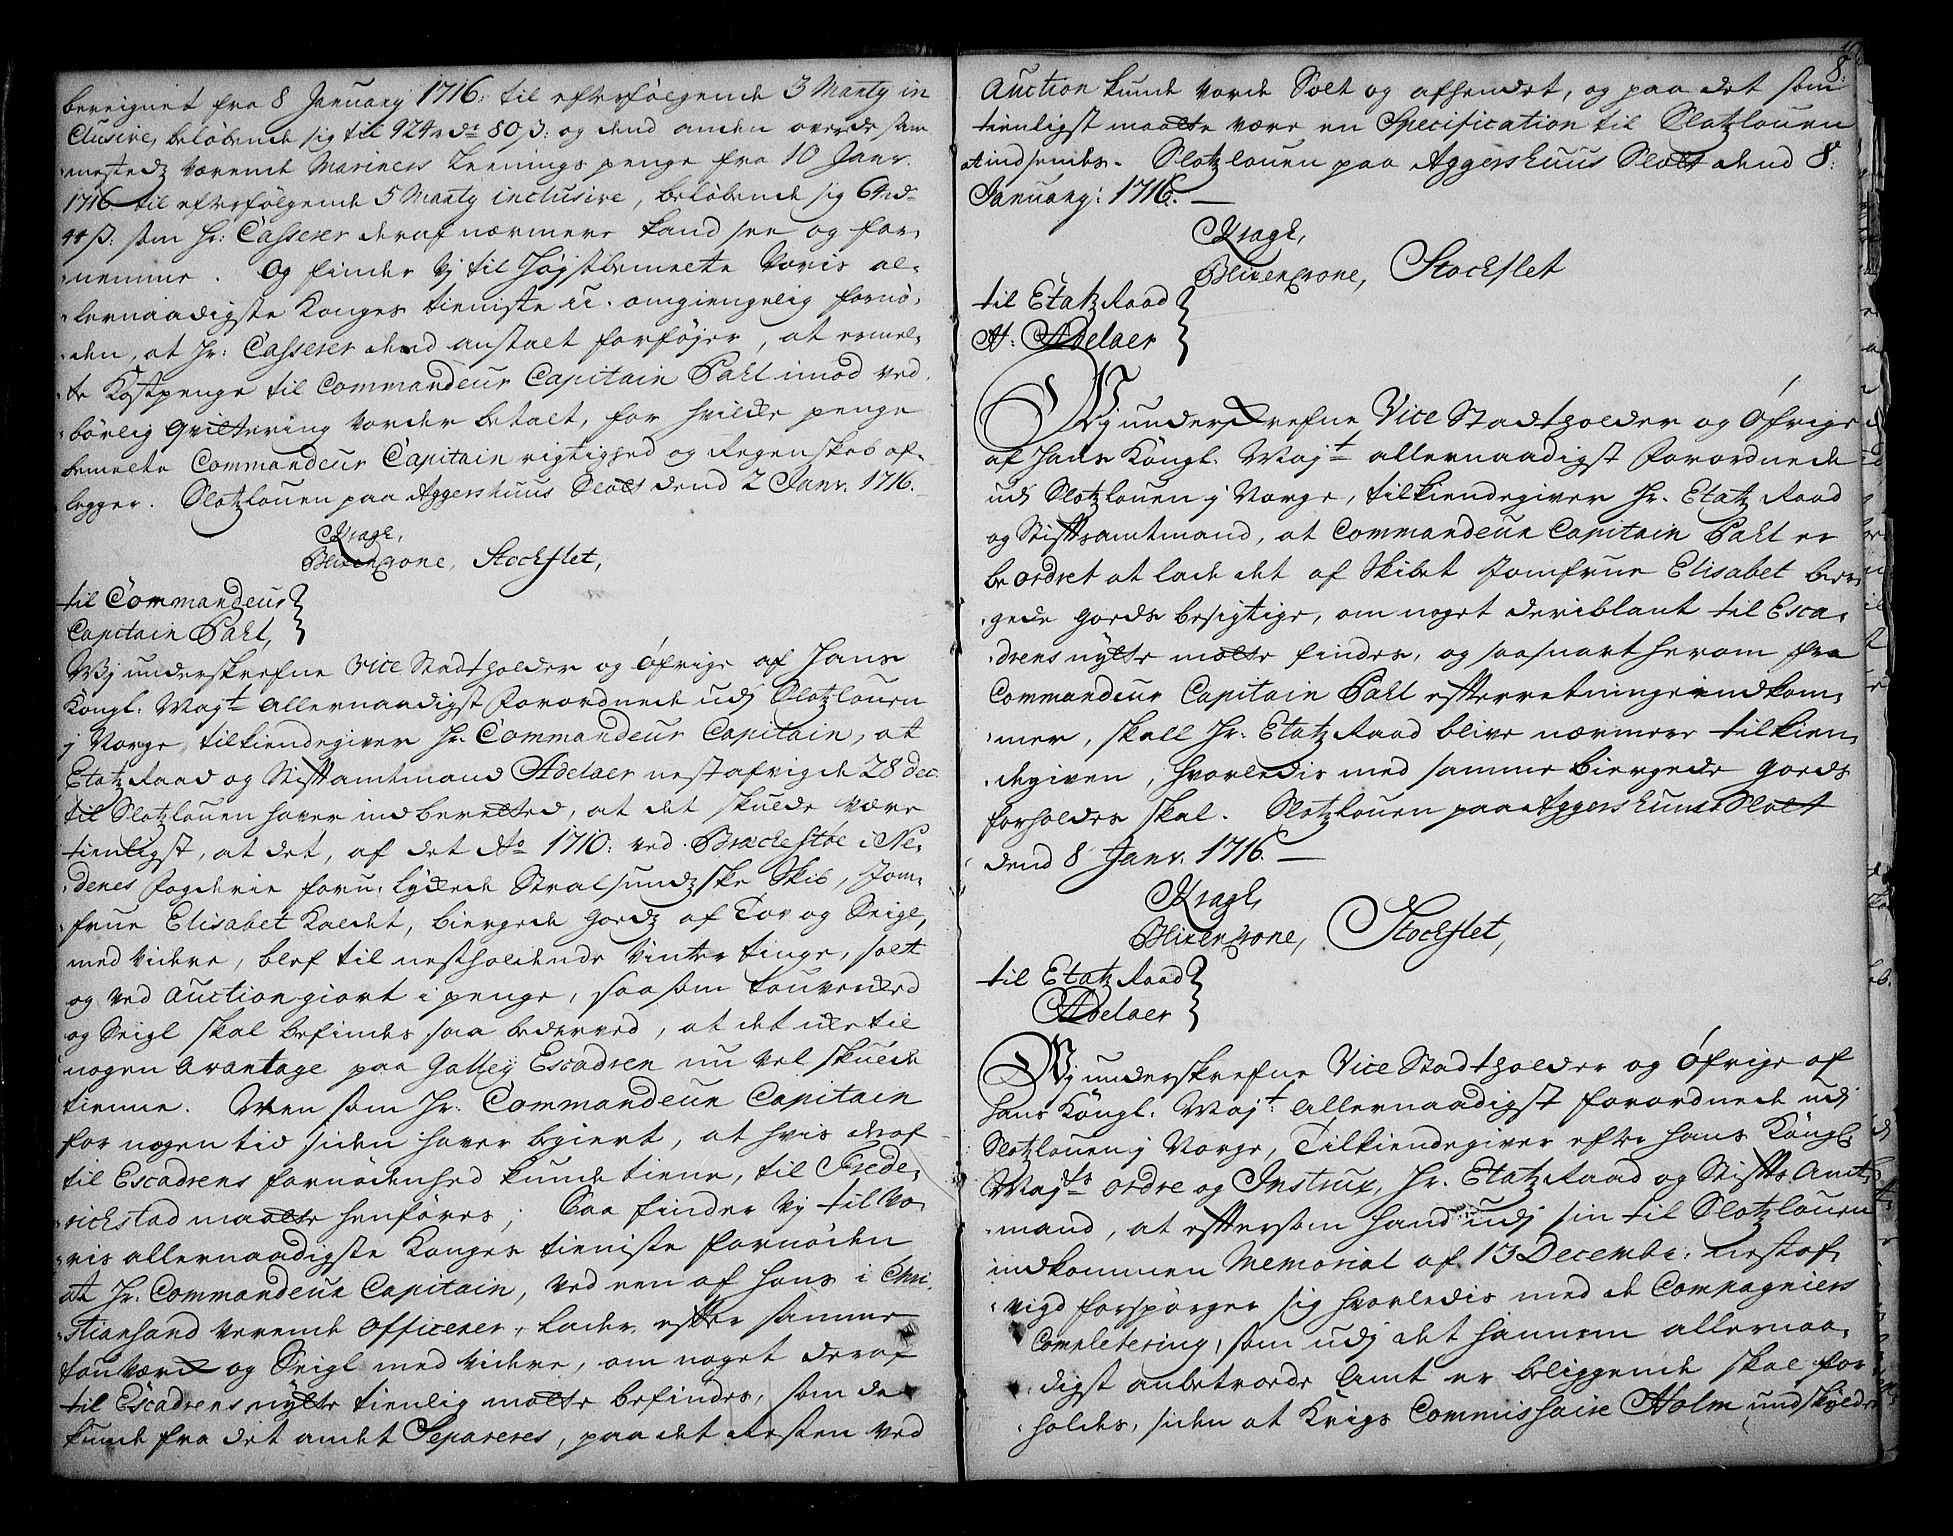 bereignet fra 8 January 1716: til efterfølgende 3 Marty in
clusive, beløbende sig til 924 rdr 80 s: og dend anden ovende sam
mestedz værende Mariners Leenings penge fra 10 Janr.
1716. til efterfølgende 5 Marty inclusive, beløbende sig 64 rd
44 s: som Hr: Casserer deraf nærmere kand see og for,
nemme. Og finder Vj til Høystbemelte Voris al,
lernaadigste Konges tieniste u-omgiengelig fornø,
den, at Hr: Casserer dend anstalt forføjer, at ermel,
te Kostpenge til Commandeur Capitain Pahl imod ved,
børlig Qvittering vorder betalt, for hvilcke penge
bemelte Commandeur Capitain rigtighed og Regenskab af,
legger. Slotzlouen paa Aggershuus Slott dend 2 Janr. 1716.
Kragh,
Blixencrone, Stockflet,
til Commandeur
Capitain Pahl,
Wj underskrefne Vice Stadtholder og Øfrige af Hans
Kongl. Mayt allernaadigst Forordnede udj Slotzlouen
j Norge, tilkiendegiver Hr. Commandeur Capitain, at
Etatz Raad og Stifftamtmand Adelaer nestafvigde 28 dec.
til Slotzlouen haver indberetted, at det skulde være
tienligst, at det, af det Ao 1710: ved Brackestøe i Ne,
denes Fogderie foru-lyckede Stralsundz ske Skib, Jom,
frue Elisabet Kaldet, biergede Godz af Tov og Seigl,
med videre, blef til nestholdende Vinter tinge, solt
og ved Auction giort i penge, saasom touverцked
og Seigl skal befindes saa bederved, at det icke til
nogen avantage paa Galley Escadren nu vel skulde
tienne. Men som Hr: Commandeur Capitain
for nogen tid siden haver begiert, at hvis deraf
til Escadrens fornødenhed kunde tiene, til Frede,
richstad maatte henføres; Saa finder Vj til Vo,
ris allernaadigste Konges tieniste fornøden
at Hr: Commandeur Capitain, ved een af hans i Chri,
stiansand verende Officerer, lader efter samme
touværck og Seigl med videre, om noget deraf
til Escadrens nytte tienlig motte befindes, som da
kunde fra det andet Separeres, paa det Resten ved
8:
Auction kunde vorde Solt og afhendet, og paa det som
tienligst maatte være en Specification til Slotzlouen
at indsendes. Slotzlouen paa Aggershuus Slott dend 8:
January: 1716.
Kragh,
Blixencrone, Stockflet
til Etatz Raad
H. Adelaer
Wj underskrefne Vice Stadtholder og Øfrige
af Hans Kongl. Mayt allernaadigst Forordnede
udj Slotzlouen j Norge, tilkiendegiver Hr. Etatz Raad
og Stifftsamtmand, at Commandeur Capitain Pahl er
beordret at lade det af Skibet Jomfrue Elisabet bier,
gede Godz besigtige, om noget deriblant til Esca,
drens nytte motte findes, og saasnart herom fra
Commandeur Capitain Pahl efterretning indkom,
mer, skall Hr. Etatz Raad blive nærmere tilkien,
degiven, hvorledis med samme biergede Godz
forholdes skal. Slotzlouen paa Aggershuus Slott
dend 8 Janr. 1716.
Kragh,
Blixencrone, Stockflet,
til Etatz Raad
Adelaer
Wj underskrefne Vice Stadtholder og Øfrige af
Hans Kongl. Mayt: allernaadigst forordnede udj
Slotzlouen j Norge, Tilkiendegiver efter Hans Kongl.
Mayts ordre og Instrux, Hr. Etatz Raad og Stiffts Amt,
mand, at eftersom Hand udj sin til Slotzlouen
indkommen Memorial af 13 Decembr: nestaf,
vigd forspørger sig hvorledis med de Compagniers
Completering, som udj det hannem allernaa,
digst anbetroede Amt er beliggende skal for
holdes, siden at Krigs Commissaire Holm undskylder